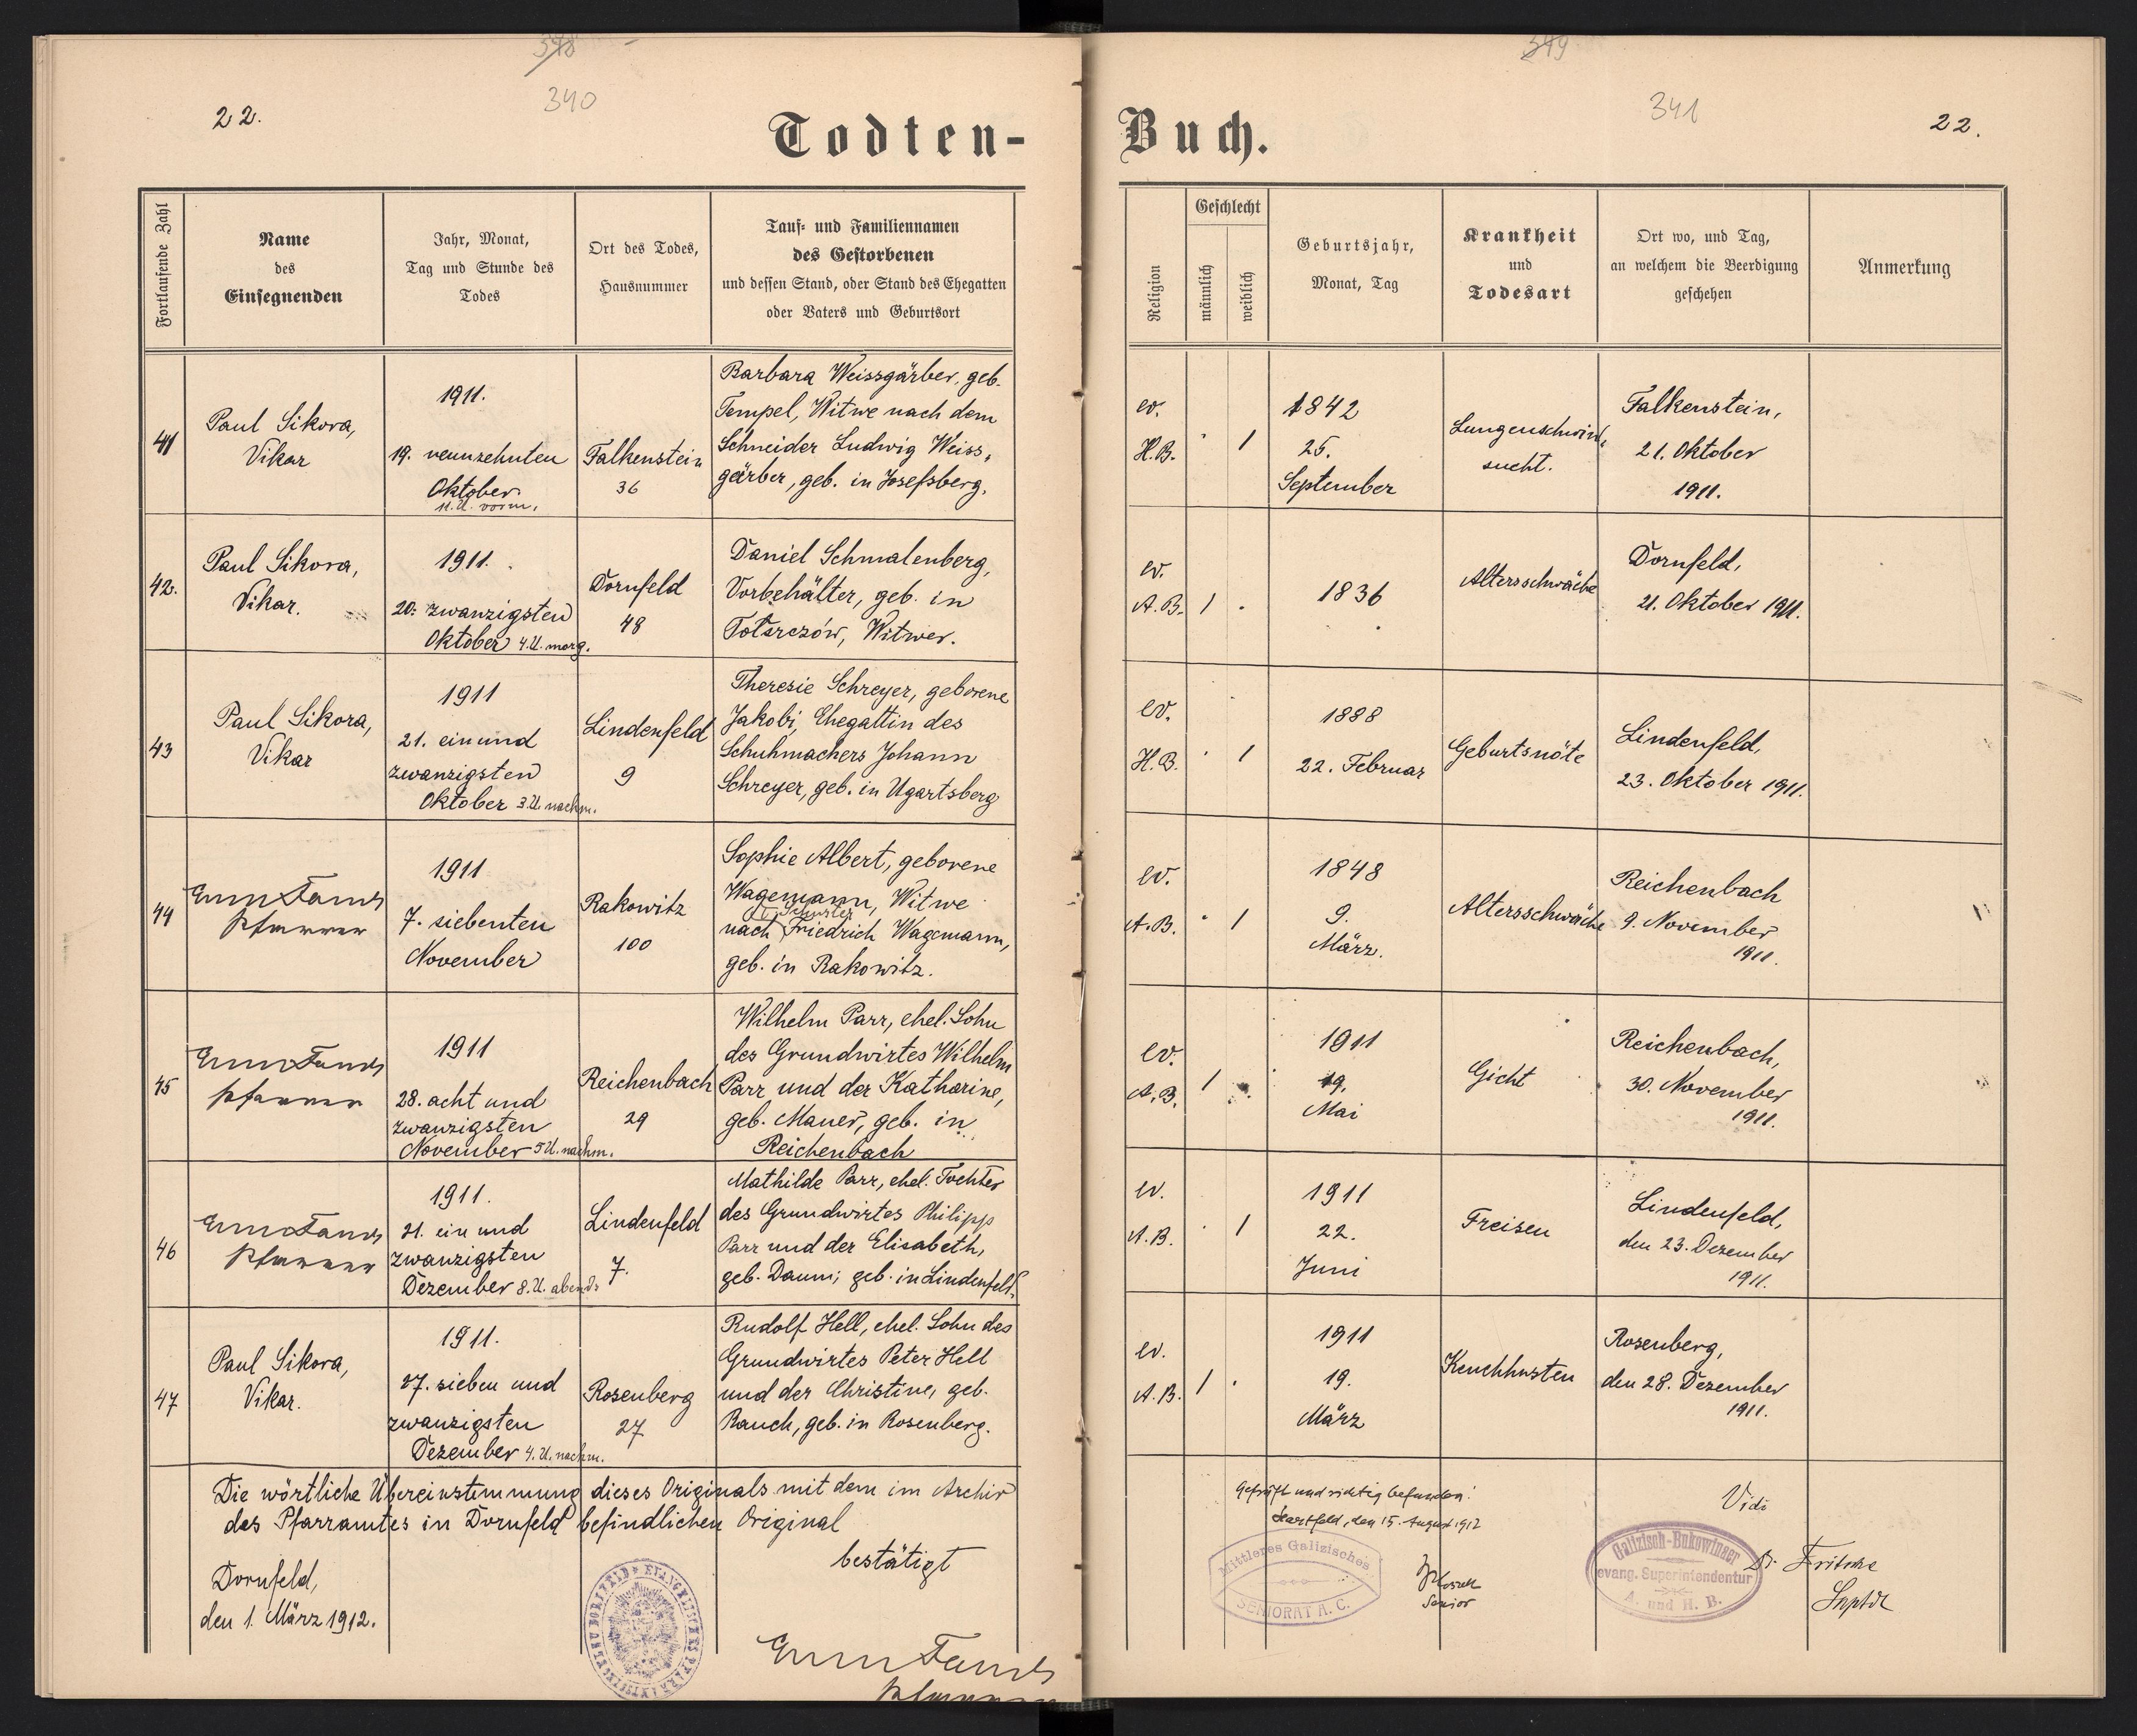 340
22.
Todten-
Fortlaufende Zahl
Name
des
Einsegnenden
Jahr, Monat,
Tag und Stunde des
Todes
Ort des Todes,
Hausnummer
Tauf- und Familiennamen
des Gestorbenen
und dessen Stand, oder Stand des Ehegatten
oder Vaters und Geburtsort
41
Paul Sikora,
Vikar
1911.
19. neunzehnten
Oktober
11. U. vorm.
Falkenstein
36
Barbara Weissgärber, geb.
Tempel, Witwe nach dem
Schneider Ludwig Weiss-
gärber, geb. in Josefsberg.
42.
Paul Sikora,
Vikar.
1911.
20. zwanzigsten
Oktober 4. U. morg.
Dornfeld
48
Daniel Schmalenberg,
Vorbehälter, geb. in
Witwer.
43
Paul Sikora,
Vikar
1911
21. einund
zwanzigsten
Oktober 3. U. nachm.
Lindenfeld
9
Theresie Schreyer, geborene
Jakobi, Ehegattin des
Schuhmachers Johann
Schreyer, geb. in Ugartsberg
44
Pfarrer
1911
7. siebenten
November
Rakowitz
100
Sophie Albert, geborene
Wagemann, Witwe
Schuster
nach Friedrich Wagemann,
geb. in Rakowitz.
45
Pfarrer
1911
28. acht und
zwanzigsten
November 5 U. nachm.
Reichenbach
29
Wilhelm Parr, ehel. Sohn
des Grundwirtes Wilhelm
Parr und der Katharine,
geb. Mauer, geb. in
Reichenbach
46
Pfarrer
1911.
21. ein und
zwanzigsten
Dezember 8. U. abends
Lindenfeld
7.
Mathilde Parr, ehel. Tochter
des Grundwirtes Philipp
Parr und der Elisabeth,
geb. Daum; geb. in Lindenfeld.
47
Paul Sikora,
Vikar.
1911.
27. sieben und
zwanzigsten
Dezember 4. U. nachm.
Rosenberg
27
Rudolf Hell, ehel. Sohn des
Grundwirtes Peter Hell
und der Christine, geb.
Rauch, geb. in Rosenberg.
Die wörtliche Übereinstimmung dieses Originals mit dem im Archiv
des Pfarramtes in Dornfeld befindlichen Original
bestätigt
Dornfeld,
den 1. März 1912.
Pfarrer
341
22.
Buch.
Religion
Geschlecht
männlich
weiblich
Geburtsjahr,
Monat, Tag
Krankheit
und
Todesart
Ort wo, und Tag,
an welchem die Beerdigung
geschehen
Anmerkung
ev.
H.B.
1
1842
25.
September
Lungenschwind-
sucht.
Falkenstein,
21. Oktober
1911.
ev.
A.B.
1
1836
Altersschwäche
Dornfeld,
21. Oktober 1911.
ev.
H.B.
1
1888
22. Februar
Geburtsnöte
Lindenfeld,
23. Oktober 1911.
ev.
A.B.
1
1848
9.
März.
Altersschwäche
Reichenbach
9. November
1911.
ev.
A.B.
1
1911
19.
Mai
Gicht
Reichenbach,
30. November
1911.
ev.
A.B.
1
1911
22.
Juni
Freisen
Lindenfeld,
den 23. Dezember
1911.
ev.
A.B.
1
1911
19.
März
Keuchhusten
Rosenberg,
den 28. Dezember
1911.
Geprüft und richtig befunden!
Hartfeld, den 15. August 1912
Mittleres Galizisches
SENIORAT A. C.
Senior
Vidi
Galizisch-Bukowinaer
evang. Superintendentur
A. und H. B.
Dr. Fritsche
Suptdt